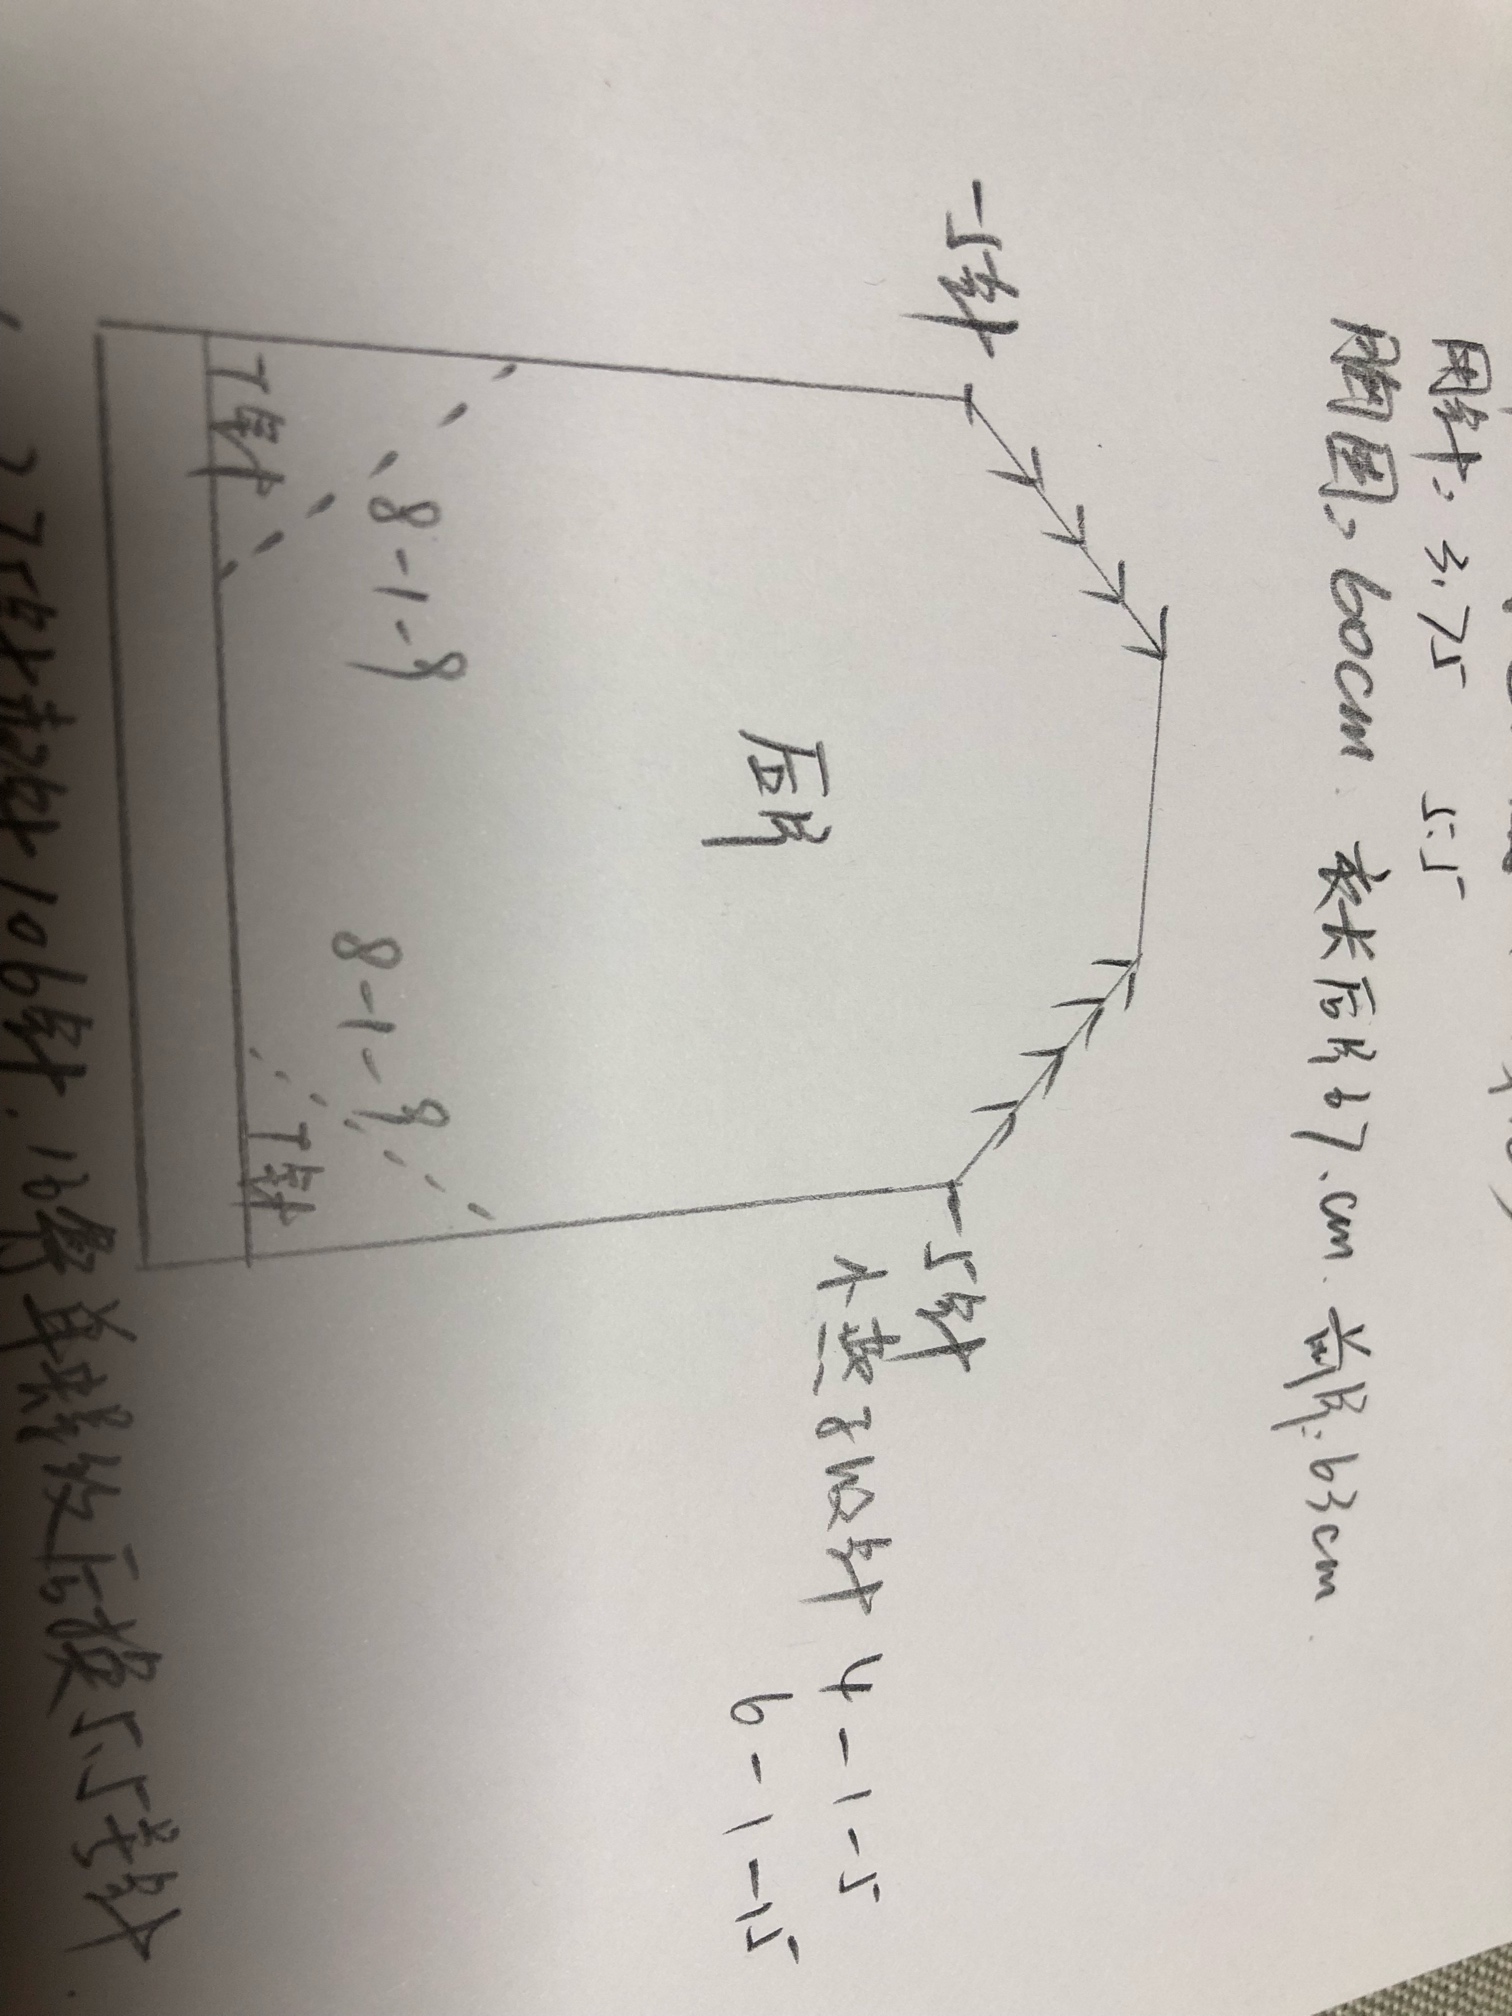 用针: 3.75 5.5
胸围: 60cm. 衣长后片67.cm. 前片: 63cm.
-5针
-5针
不要引加针 4-1-5
6-1-15
后片
8-1-8
8-1-8
7针
7针
1, 3.75针起针106针. 16行单罗纹后换5.5号针.